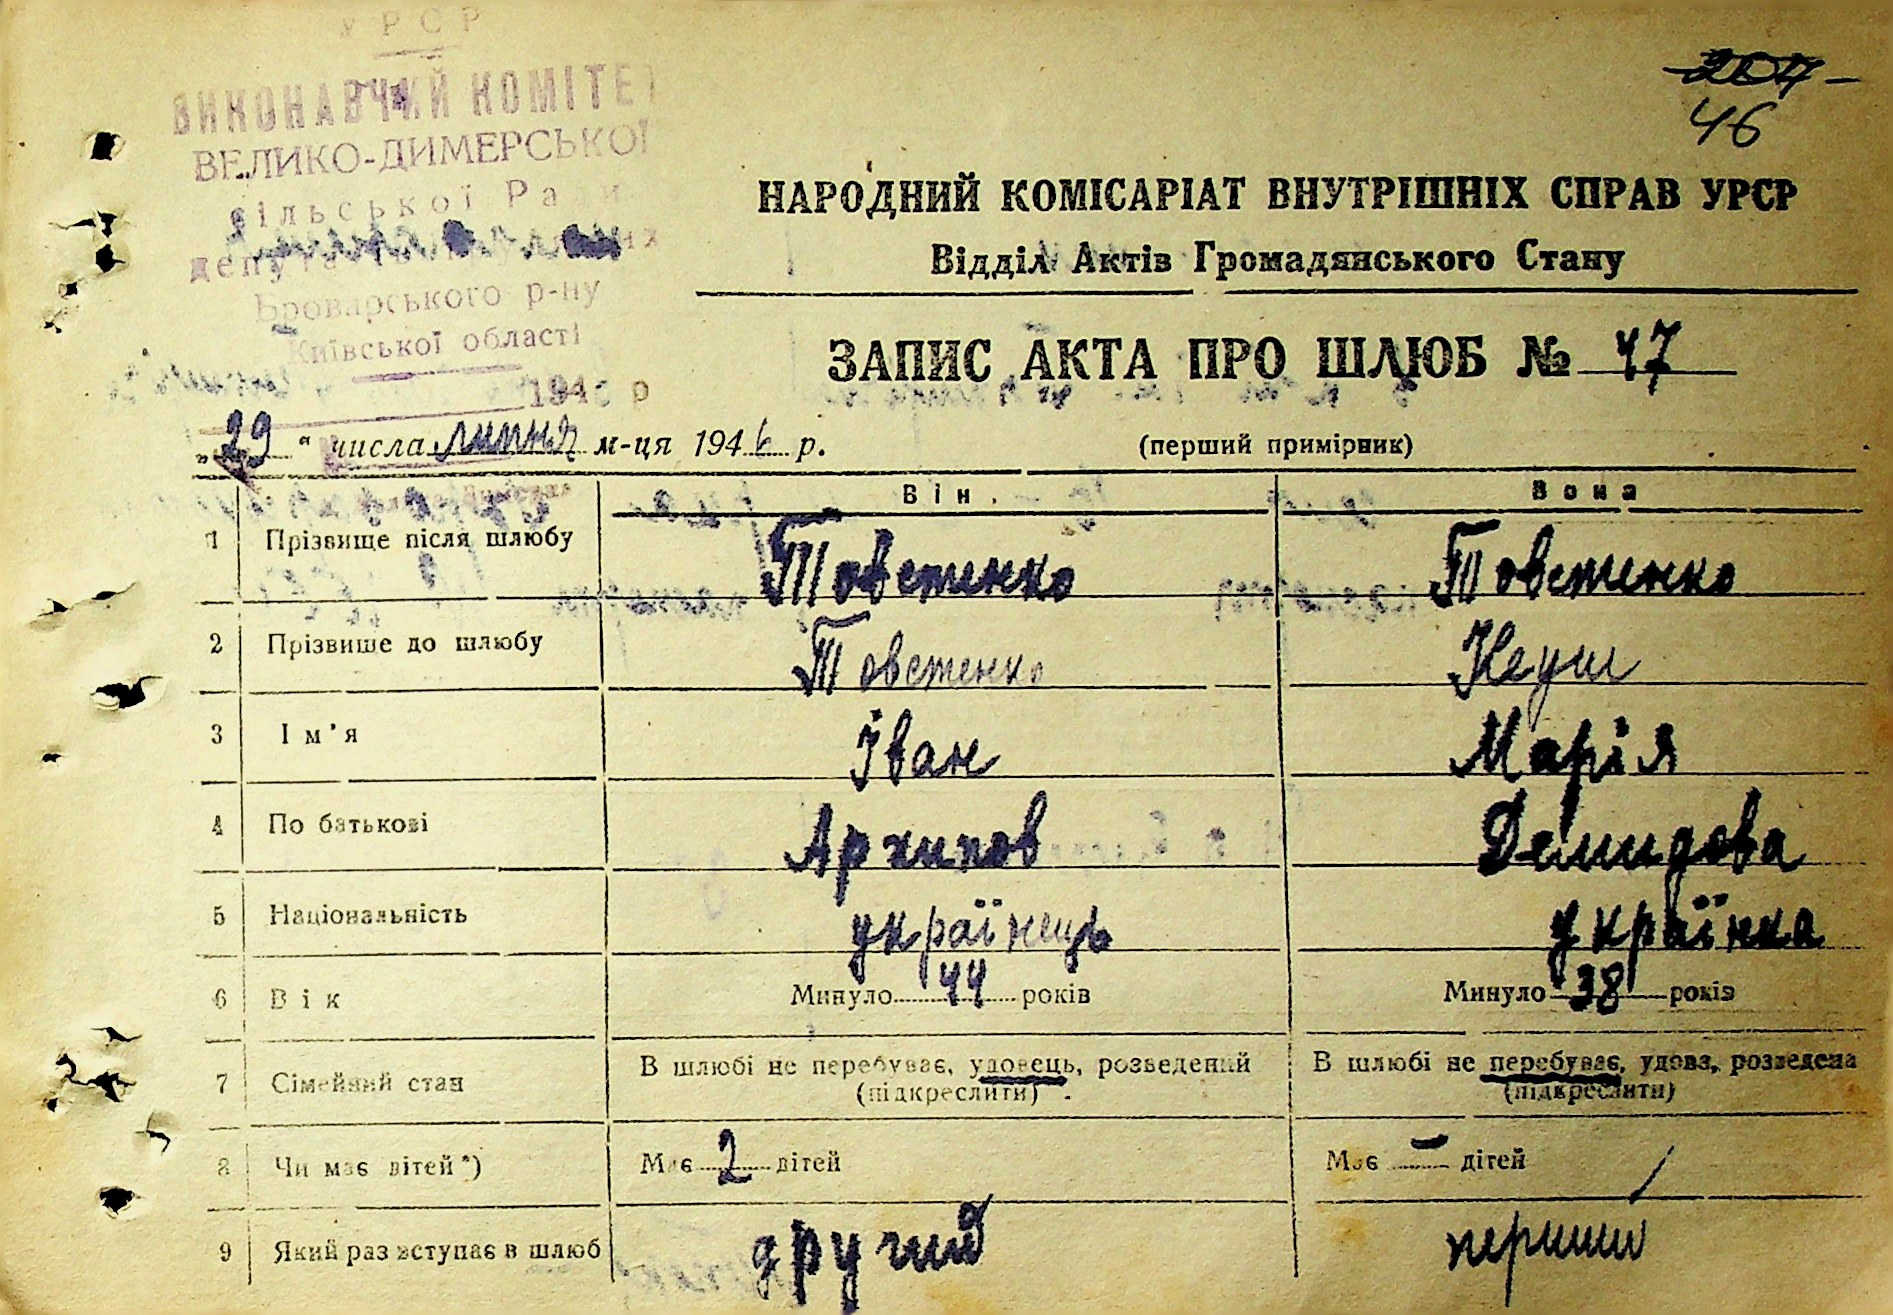 УРСР
ВИКОНАВЧИЙ КОМІТЕТ
ВЕЛИКО-ДИМЕРСЬКОЇ
сільської Ради
Броварського р-ну
Київської області
194 р
207
46
НАРОДНИЙ КОМІСАРІАТ ВНУТРІШНІХ СПРАВ УРСР
Відділ Актів Громадянського Стану
ЗАПИС АКТА ПРО ШЛЮБ № 47
„29“ числа липня м-ця 1946 р.
(перший примірник)
Він. Вона
1 Прізвище після шлюбу Товстенко Товстенко
2 Прізвише до шлюбу Товстенко Кеуш
3 Ім'я Іван Марія
4 По батькові Архипов Демидова
5 Національність українець українка
6 Вік Минуло 44 років Минуло 38 років
7 Сімейний стан В шлюбі не перебуває, удовець, розведений В шлюбі не перебуває, удова, розведена
(підкреслити) (підкреслити)
8 Чи має дітей*) Має 2 дітей Має – дітей
9 Який раз вступає в шлюб другий перший